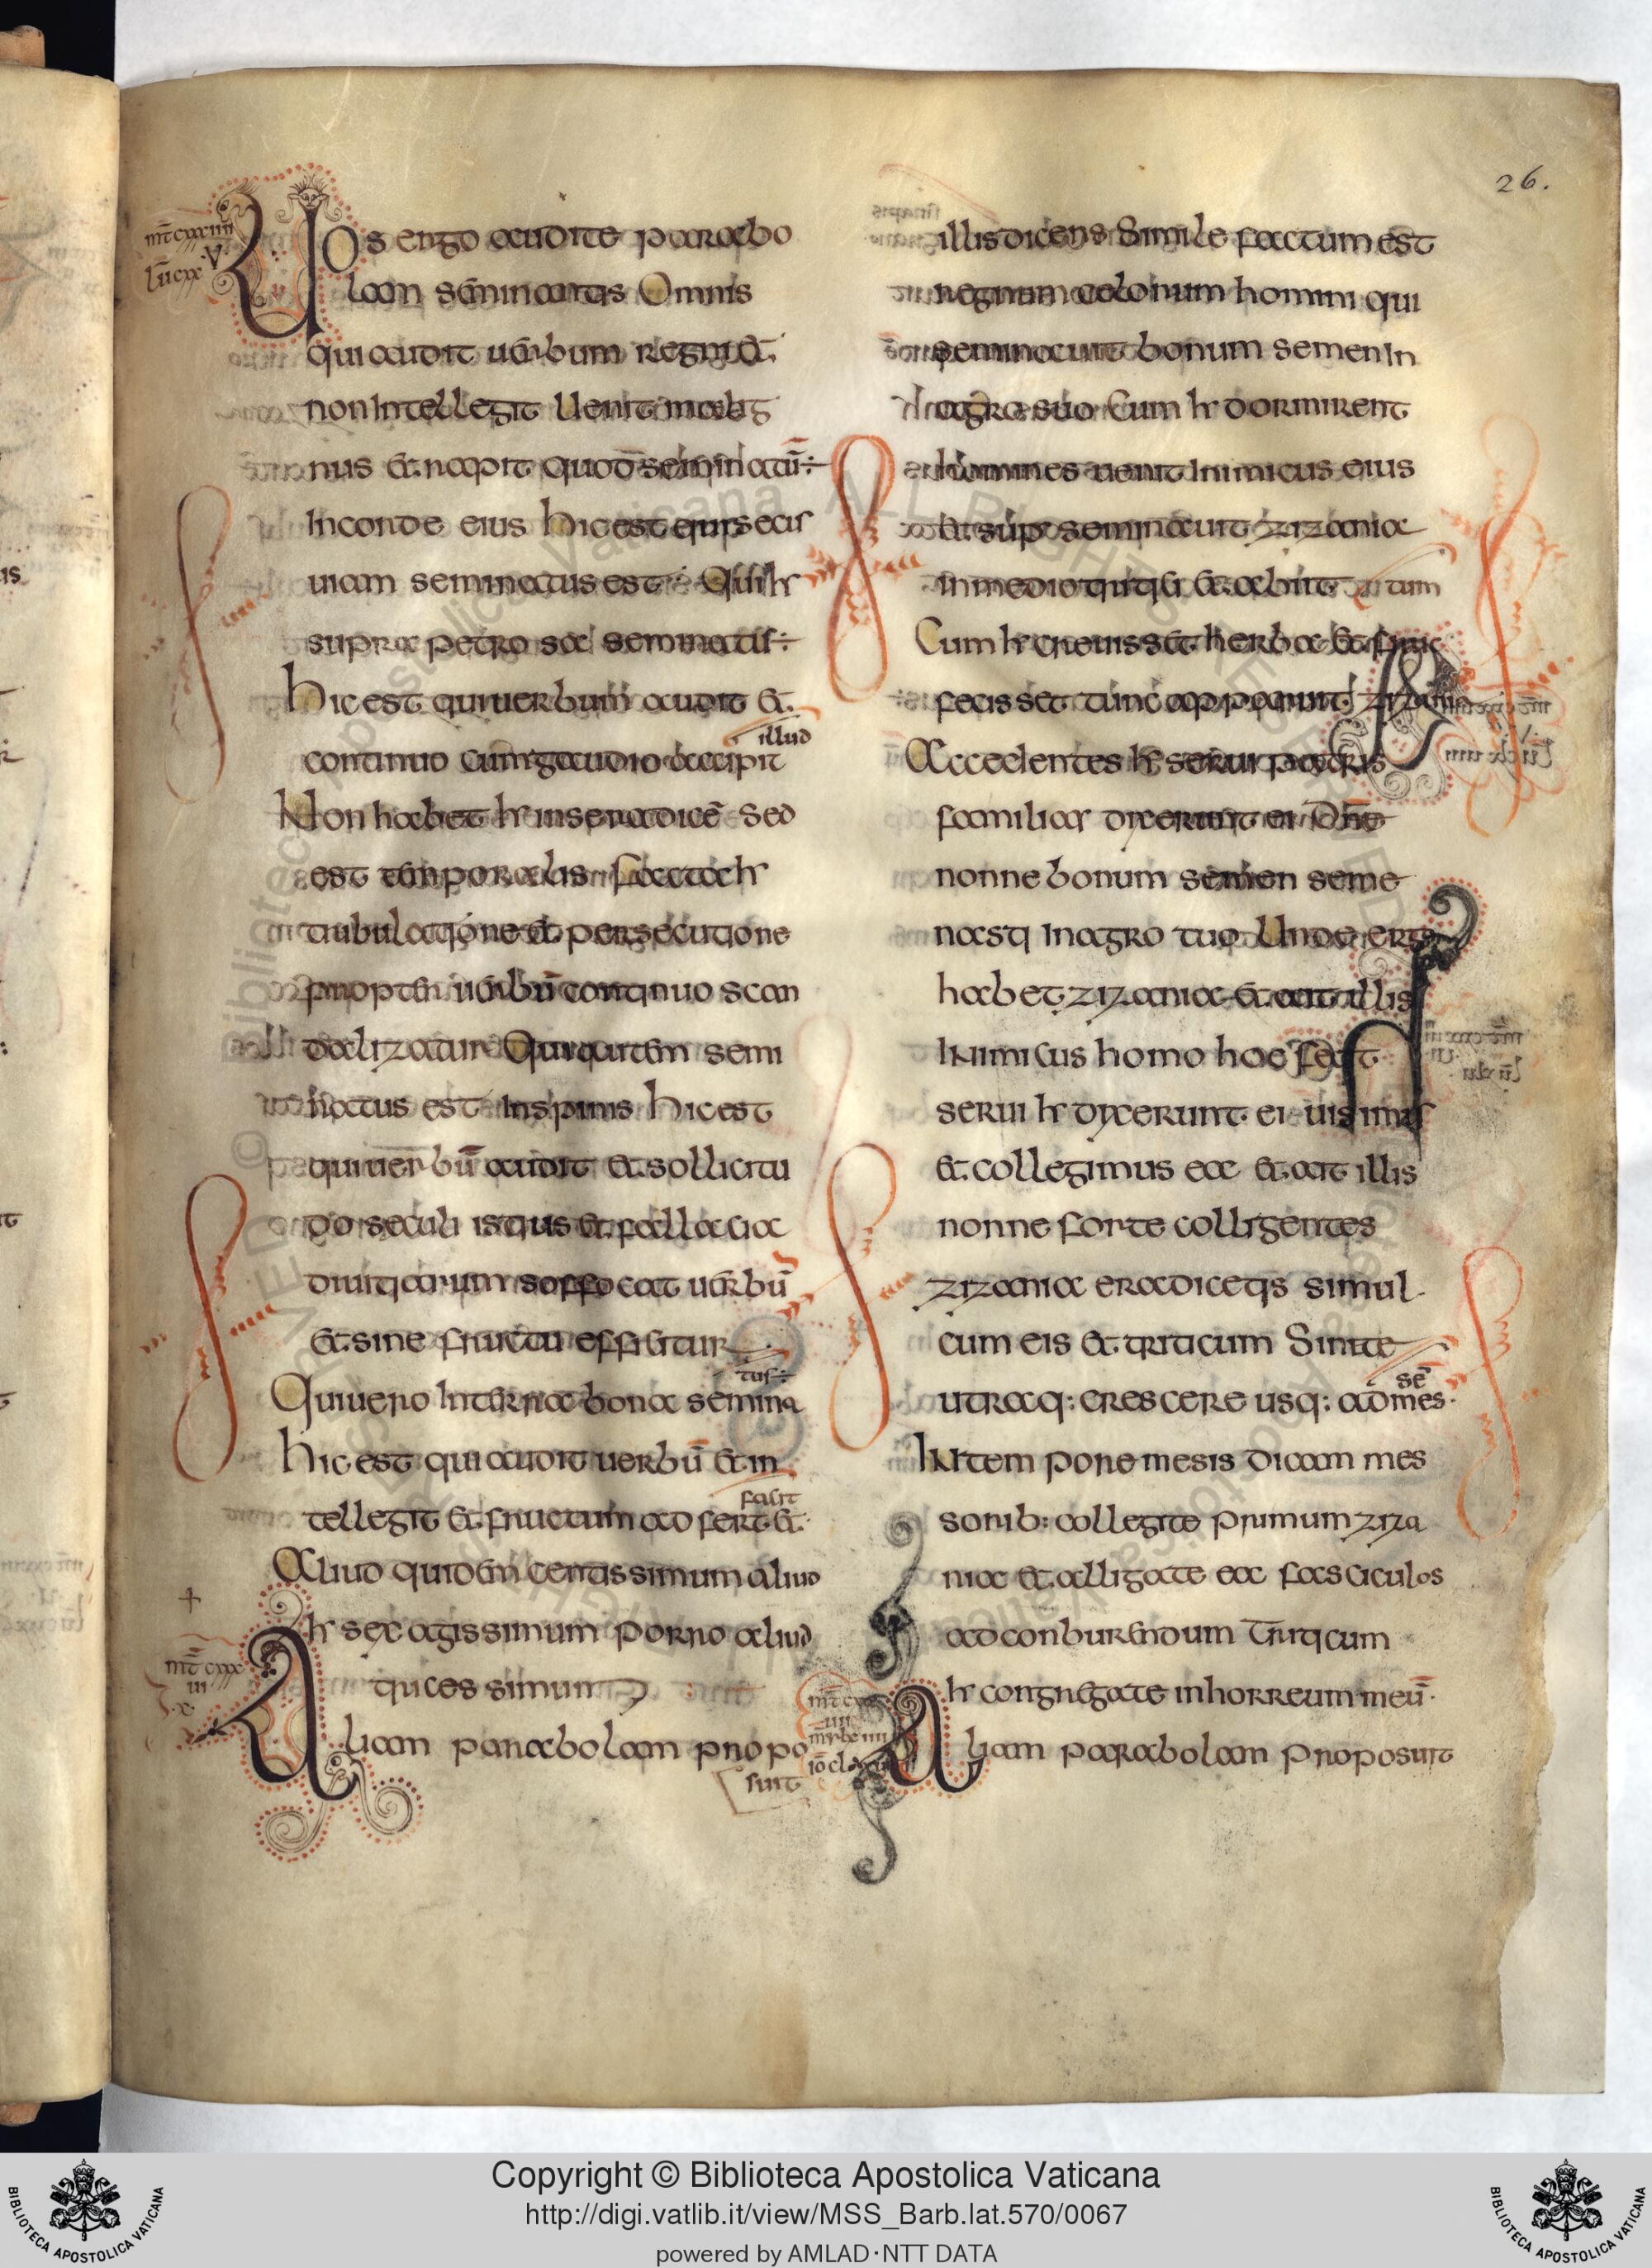 26.
Uos ergo audite parabo
lam seminantis Omnis
qui audit uerbum regni et
non intellegit Uenit malig
nus et rapit quod seminatū
in corde eius hic est qui secus
uiam seminatus est Qui hr
supra petrosa seminatus
hic est qui uerbum audit et
continuo cum gaudio accipit illud
Non habet hr in se radicē sed
est temporalis facta hr
tribulatione et persecutione
propter uerbū continuo scan
dalizatur Qui autem semi
natus est in spinis hic est
qui uerbū audit et sollicitu
do seculi istius et fallacia
diuitiarum soffocat uerbū
et sine fructu efficitur
Qui uero in terra bona semina
tus
hic est qui audit uerbū et in
tellegit et fructum adfert et
facit
Aliud quidem centissimum aliud
hr sexagissimum porro aliud
tricessimum
Aliam parabolam propo
suit
illis dicens Simile factum est
regnum celorum homini qui
seminauit bonum semen in
agro suo Cum hr dormirent
homines uenit inimicus eius
et sup seminauit zizania
in medio tritici et abiit
tum
Cum hr creuisset herba et fruc
fecisset tunc apparuit zizania
Accedentes hr serui patris
familias dixerunt ei Dn̄e
nonne bonum semen seme
nasti in agro tuo Unde ergo
habet zizania et ait illis
Inimicus homo hoc fecit
serui hr dixerunt ei uis imus
et collegimus ea et ait illis
nonne forte colligentes
zizania eradicetis simul
cum eis et triticum Sinite
utraq: crescere usq: ad mes
sē
In tempore mesis dicam mes
sorib: collegite primum ziza
nia et alligate ea fasciculos
ad conburendum Triticum
hr congregate in horreum meū
Aliam parabolam proposuit
Copyright © Biblioteca Apostolica Vaticana
http://digi.vatlib.it/view/MSS_Barb.lat.570/0067
powered by AMLAD·NTT DATA
BIBLIOTECA APOSTOLICA VATICANA
BIBLIOTECA APOSTOLICA VATICANA